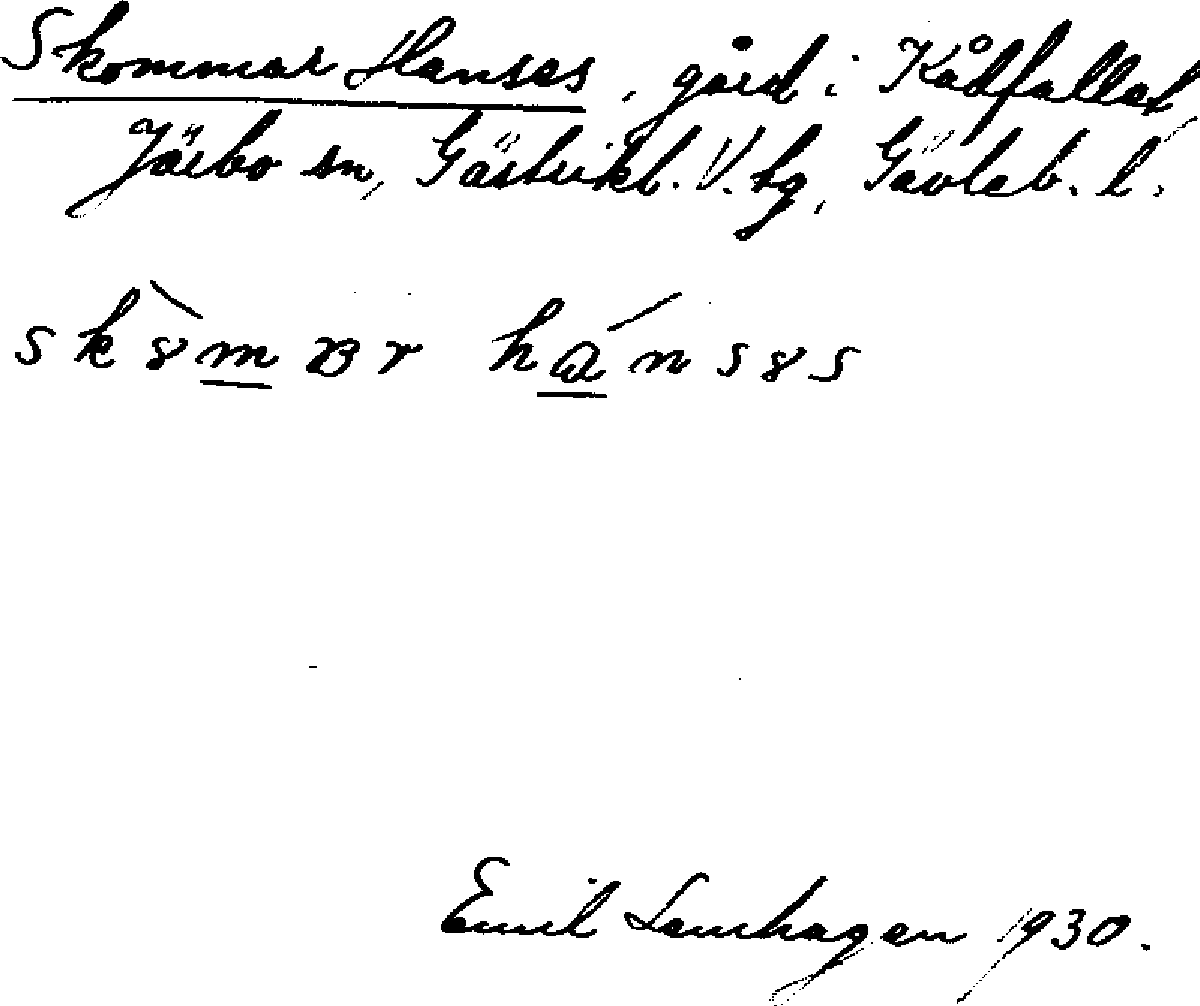 Skommar Hanses, gård i Kådfallet
Järbo sn, Gästrikl. V. tg, Gävleb. l.
sk8̀mɐr háns8s
Emil Lamhagen 1930.